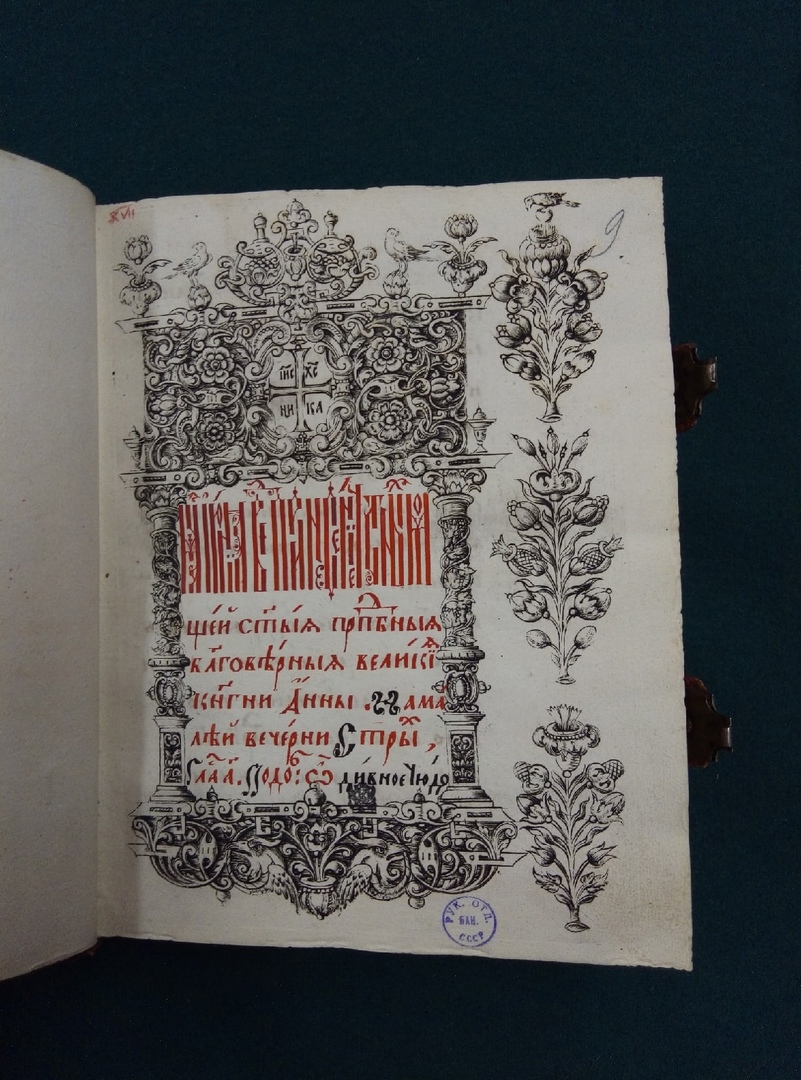 XVII
9
І҃ИС Х҃С
НИ КА
щей ст҃ыѧ прпⷣбныѧ
бл҃говѣ́рныѧ велики́ѧ
кн҃гни А҆́нны . На ма
лѣ́й вече́рни Стꙋры̀ ,
Гла́ д҃. Подо́ : Ѡ҆ ди́вное чю́до
РУК. ОТД.
БАН.
СССР